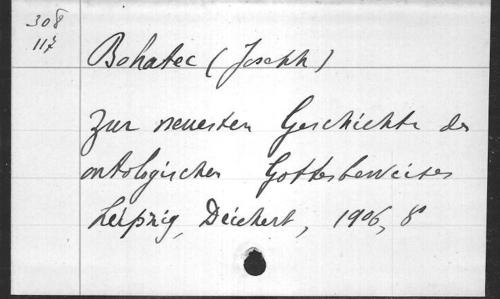 308
117
Bohatec (Joseph)
Zur neuesten Geschichte des
ontologischen Gottesbeweises
Leipzig, Deichert, 1906, 8°